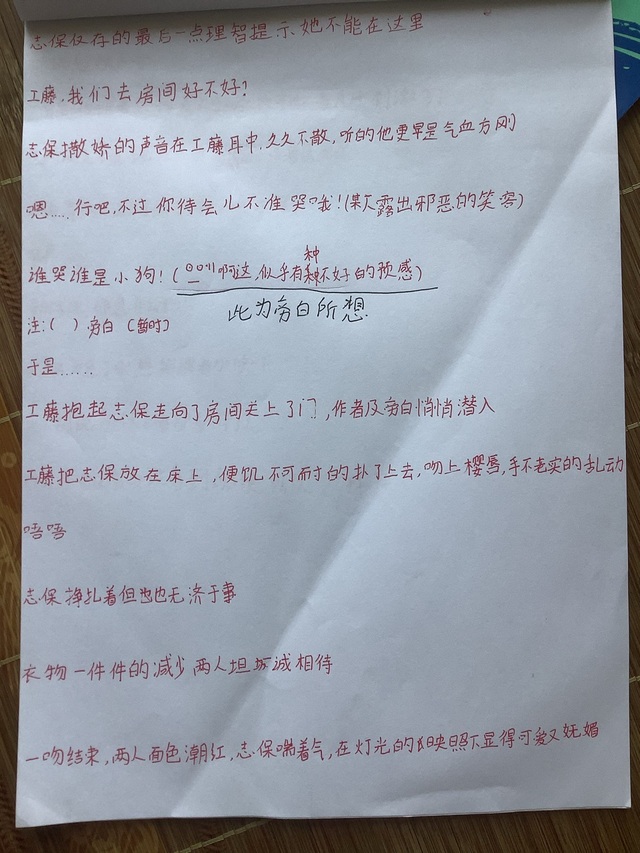 志保仅存的最后一点理智提示她不能在这里
工藤,我们去房间好不好?
志保撒娇的声音在工藤耳中,久久不散,听的他更早是气血方刚
嗯.....行吧,不过你待会儿不准哭哦!(某人露出邪恶的笑容)
种
谁哭谁是小狗!(啊这,似乎有不好的预感)
此为旁白所想
注:( )旁白(暂时)
于是......
工藤抱起志保走向了房间关上了门,作者及旁白悄悄潜入
工藤把志保放在床上,便饥不可耐的扑了上去,吻上樱唇,手不老实的乱动
唔唔
志保挣扎着但也无济于事
衣物一件件的减少两人坦诚相待
一吻结束,两人面色潮红,志保喘着气,在灯光的映照下显得可爱又妩媚